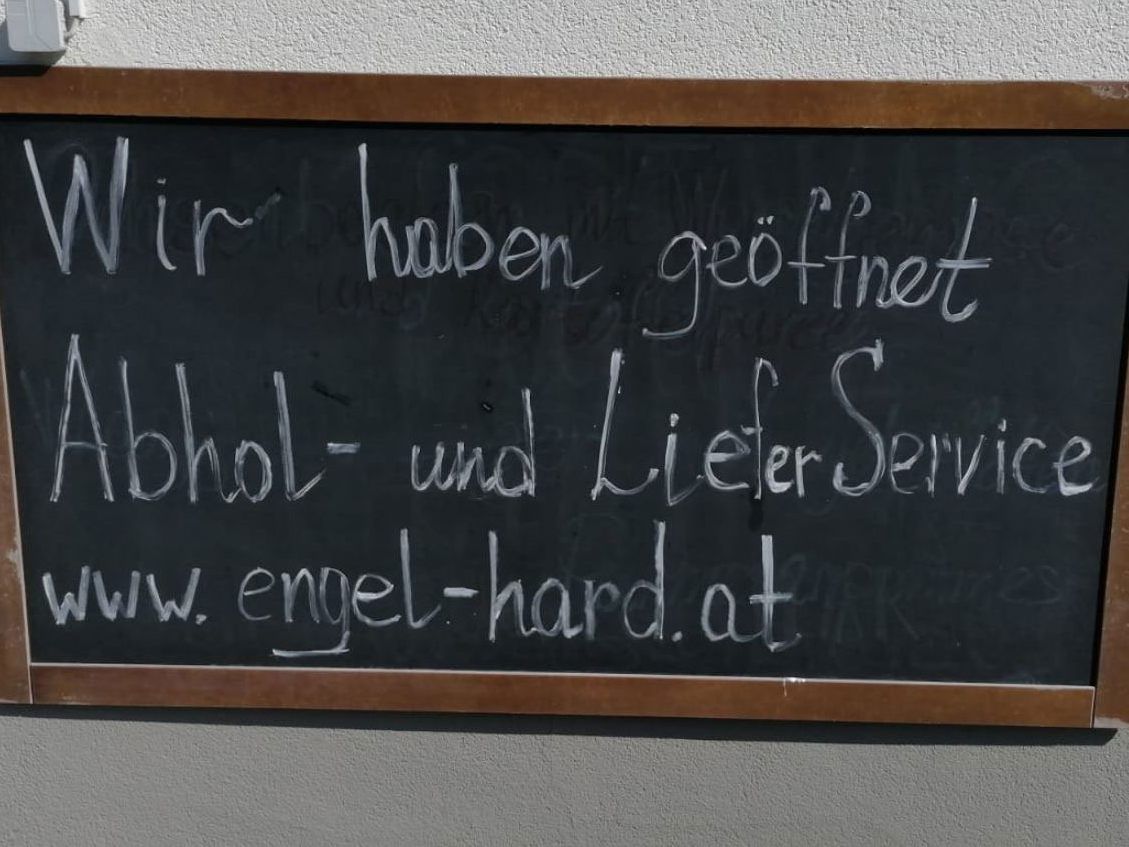 Wir haben geöffnet
Abhol- und LieferService
www.engel-hard.at